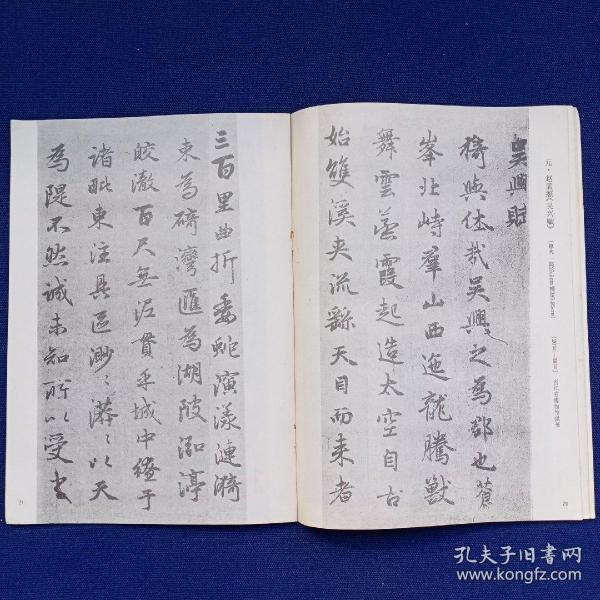 元·赵孟頫《吴兴赋》
吳興賦
猗與休哉吳興之為郡也蒼
峯北峙羣山西迤龍騰獸
舞雲蒸霞起造太空自古
始雙溪夾流繇天目而來者
三百里曲折委蛇演漾漣漪
束為碕灣匯為湖陂泓渟
皎澈百尺無泥貫乎城中繚于
諸毗東注具區渺渺漭漭以天
為隄不然誠未知所以受之
20
21
孔夫子旧书网
www.kongfz.com